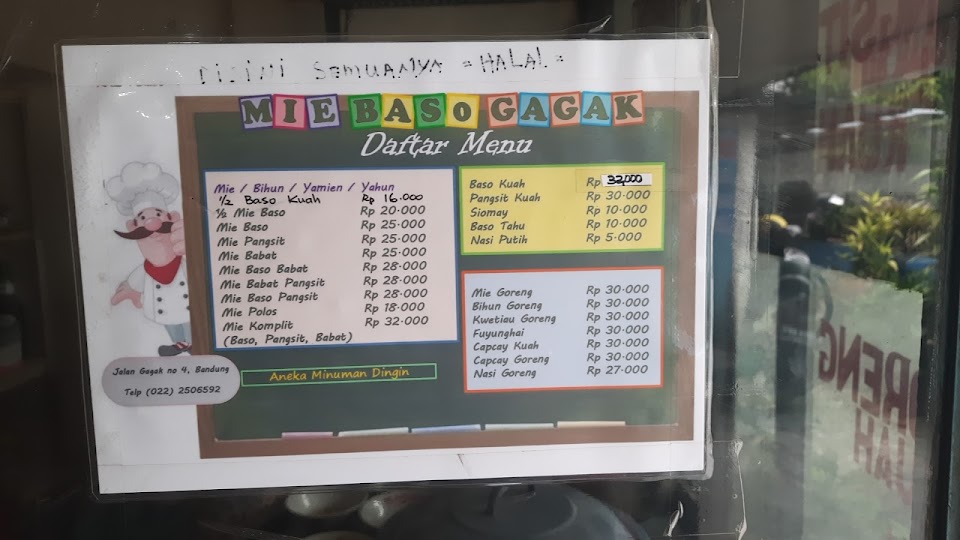 DISINI SEMUANYA = HALAL =
MIE BASO GAGAK
Daftar Menu
Mie / Bihun / Yamien / Yahun
½ Baso Kuah Rp 16.000
½ Mie Baso Rp 20.000
Mie Baso Rp 25.000
Mie Pangsit Rp 25.000
Mie Babat Rp 25.000
Mie Baso Babat Rp 28.000
Mie Babat Pangsit Rp 28.000
Mie Baso Pangsit Rp 28.000
Mie Polos Rp 18.000
Mie Komplit Rp 32.000
(Baso, Pangsit, Babat)
Baso Kuah Rp 32,000
Pangsit Kuah Rp 30.000
Siomay Rp 10.000
Baso Tahu Rp 10.000
Nasi Putih Rp 5.000
Mie Goreng Rp 30.000
Bihun Goreng Rp 30.000
Kwetiau Goreng Rp 30.000
Fuyunghai Rp 30.000
Capcay Kuah Rp 30.000
Capcay Goreng Rp 30.000
Nasi Goreng Rp 27.000
Jalan Gagak no 4, Bandung
Telp (022) 2506592
Aneka Minuman Dingin